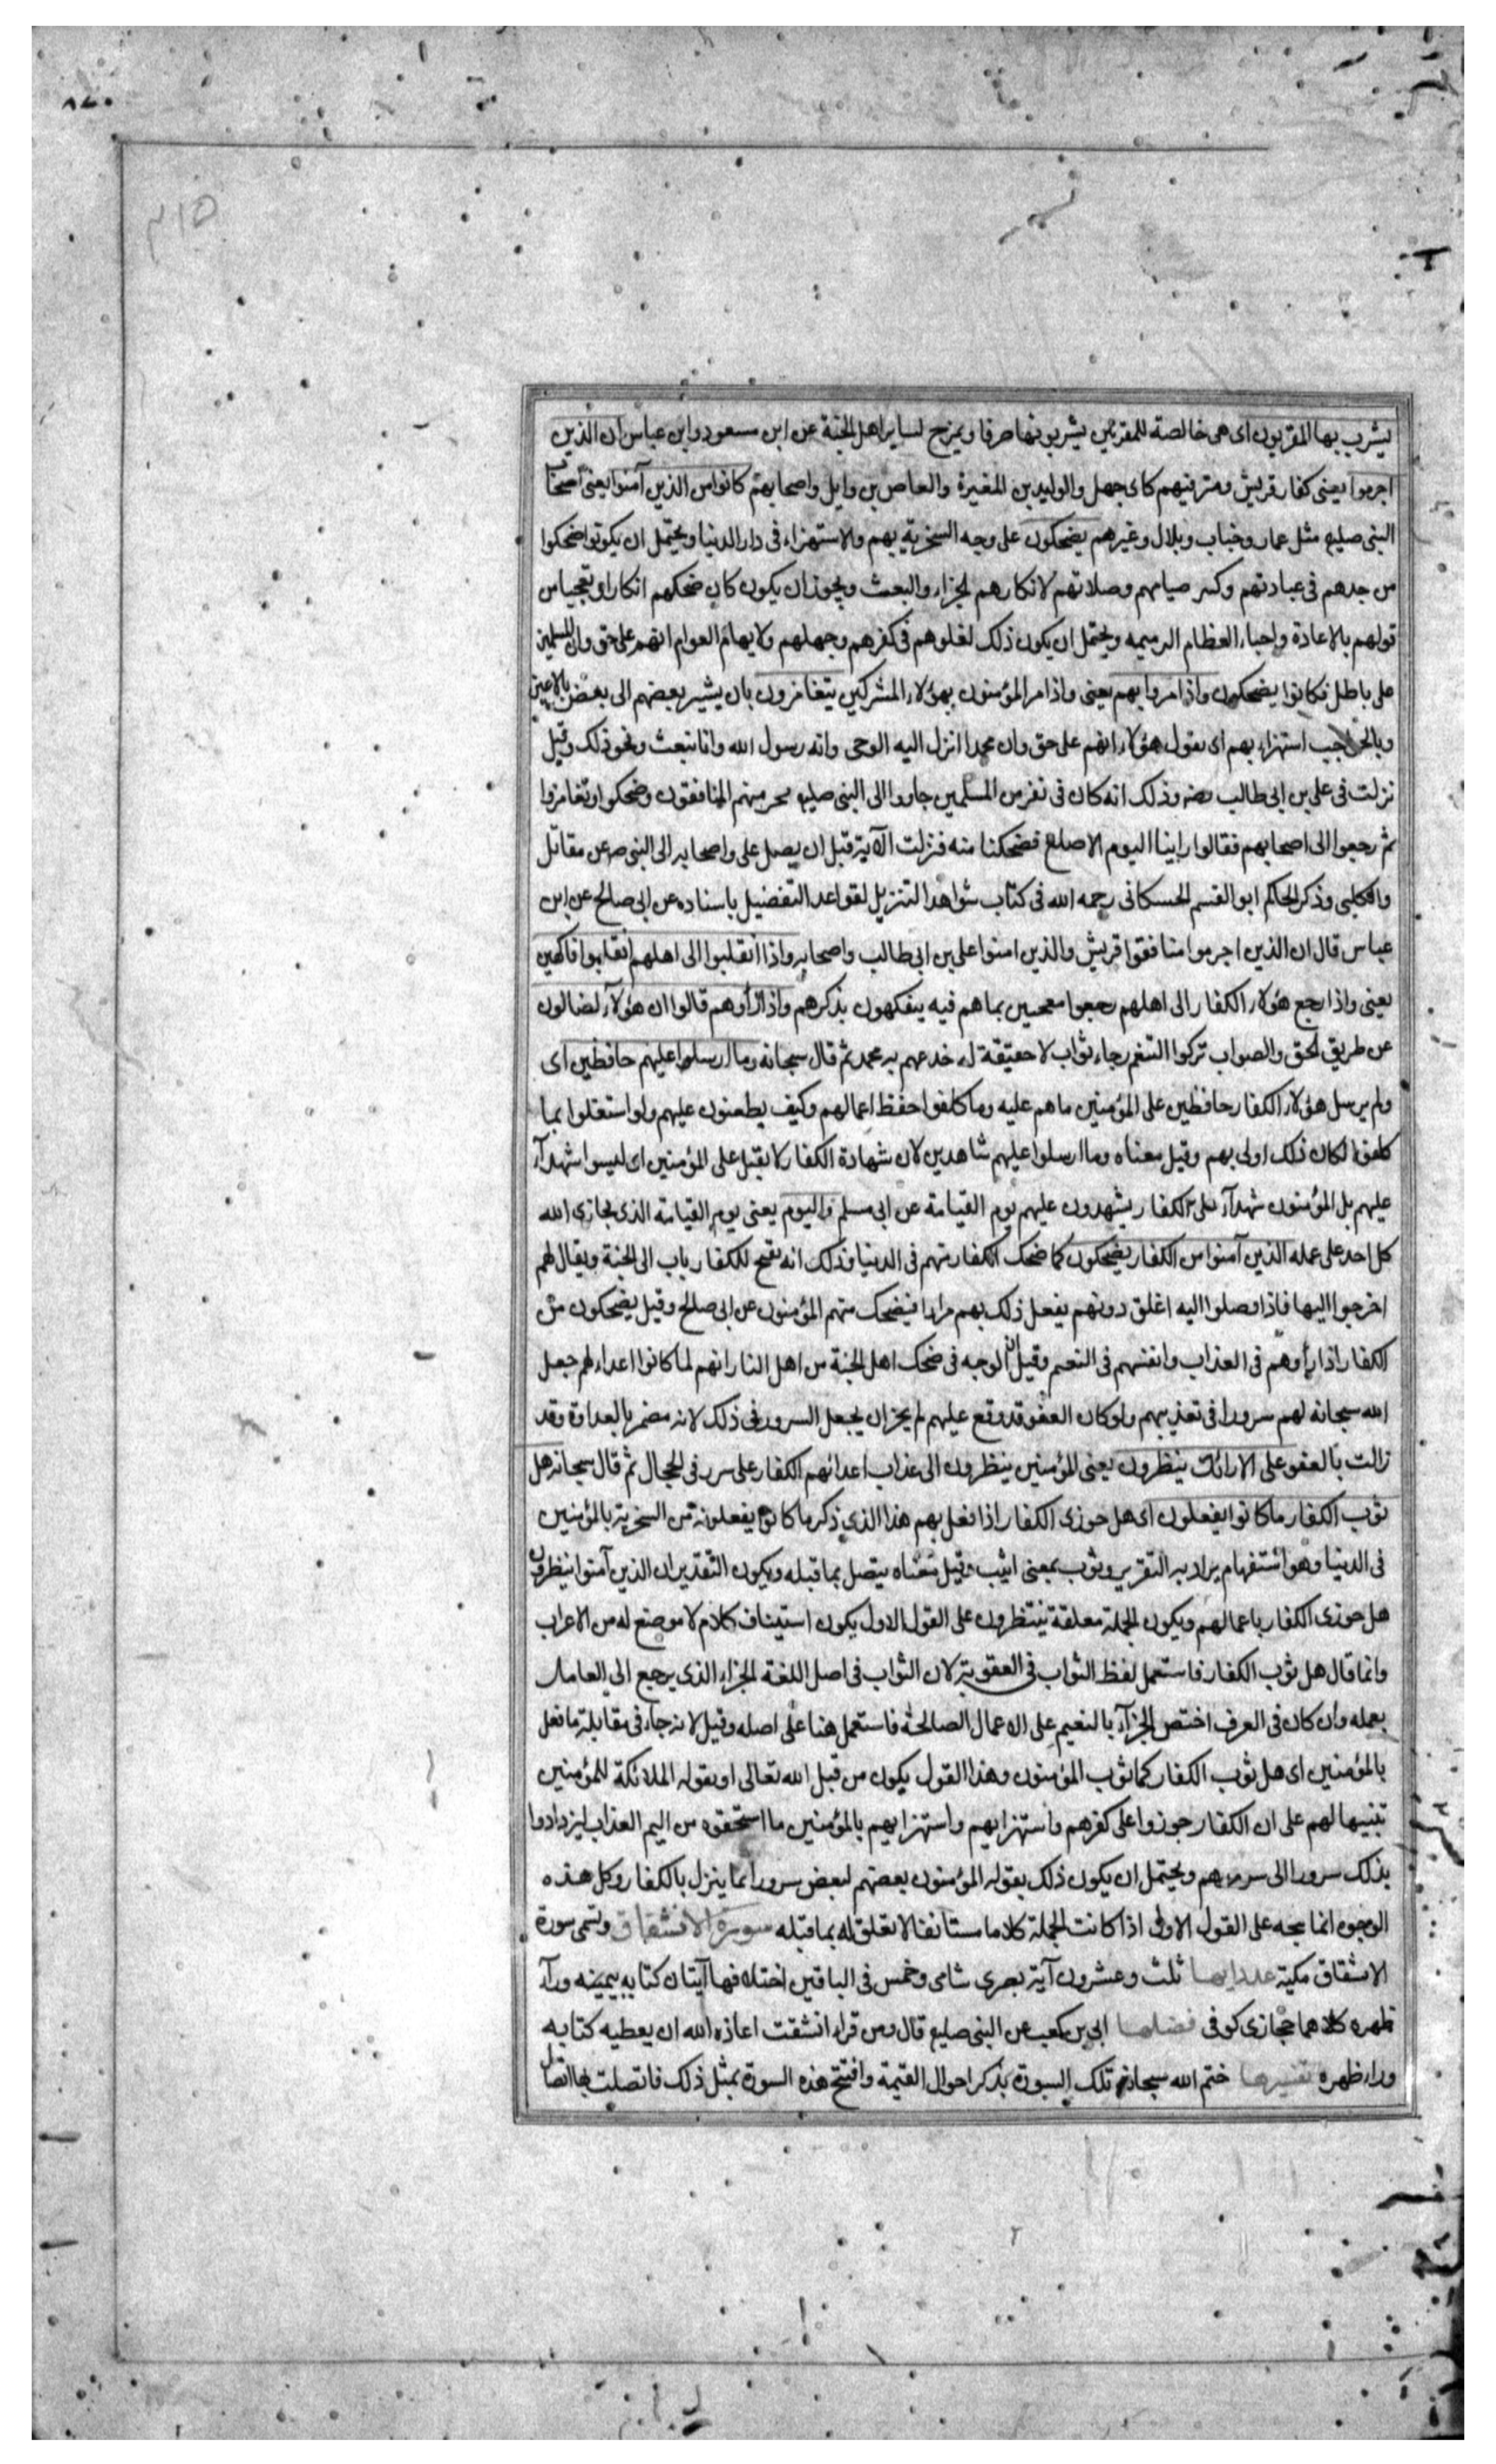 ٨٧٠
٣١٥
يشرب بها المقربون اى هى خالصة للمقربين يشربونها صرفا ويمزج لساير اهل الجنة عن ابن مسعود وابن عباس ان الذين
اجرموا يعنى كفار قريش ومترفيهم كابى جهل والوليد بن المغيرة والعاص بن وايل واصحابهم كانوا من الذين آمنوا يعنى اصحاب
النبى صليع مثل عمار وخباب وبلال وغيرهم يضحكون على وجه السخرية بهم والاستهزاء فى دار الدنيا ويحتمل ان يكونوا ضحكوا
من جدهم فى عبادتهم وكثر صيامهم وصلاتهم لانكارهم الجزاء والبعث ويجوز ان يكون كان ضحكهم انكارا وتعجبا من
قولهم بالاعادة واحياء العظام الرميمه ويحتمل ان يكون ذلك لغلوهم فى كفرهم وجهلهم ولايهام العوام انهم على حق وان المسلمين
على باطل فكانوا يضحكون واذا مروا بهم يعنى واذا مر المؤمنون بهؤلاء المشركين يتغامزون بان يشير بعضهم الى بعض بالاعين
وبالحواجب استهزاء بهم اى يقول هؤلاء انهم على حق وان محمدا انزل اليه الوحى وانه رسول الله وانا نبعث ونحو ذلك وقيل
نزلت فى على بن ابى طالب رضه وذلك انه كان فى نفر من المسلمين جاوا الى النبى صليع سخر منهم المنافقون وضحكوا وتغامزوا
ثم رجعوا الى اصحابهم فقالوا راينا اليوم الاصلع فضحكنا منه فنزلت الآية قبل ان يصل على واصحابه الى النبى ص عن مقاتل
والكلبى وذكر الحاكم ابو القسم الحسكانى رحمه الله فى كتاب شواهد التنزيل لقواعد التفضيل باسناده عن ابى صالح عن ابن
عباس قال ان الذين اجرموا منافقوا قريش والذين امنوا على بن ابى طالب واصحابه واذا انقلبوا الى اهلهم انقلبوا فاكهين
يعنى واذا رجع هؤلاء الكفار الى اهلهم رجعوا معجبين بما هم فيه يتفكهون بذكرهم واذا رأوهم قالوا ان هؤلآء لضالون
عن طريق الحق والصواب تركوا التنعم رجاء ثواب لا حقيقة له خدعهم به محمد ثم قال سبحانه وما ارسلوا عليهم حافظين اى
ولم يرسل هؤلاء الكفار حافظين على المؤمنين ما هم عليه وما كلفوا حفظ اعمالهم وكيف يطعنون عليهم ولو استغلوا بما
كلفوا لكان ذلك اولى بهم وقيل معناه وما ارسلوا عليهم شاهدين لان شهادة الكفار لا يقبل على المؤمنين اى ليسوا شهدآء
عليهم بل المؤمنون شهدآء على الكفار يشهدون عليهم يوم القيامة عن ابى مسلم فاليوم يعنى يوم القيامة الذى يجازى الله
كل احد على عمله الذين آمنوا من الكفار يضحكون كما ضحك الكفار منهم فى الدنيا وذلك انه يفتح للكفار باب الى الجنة ويقال لهم
اخرجوا اليها فاذا وصلوا اليه اغلق دونهم يفعل ذلك بهم مرارا فيضحك منهم المؤمنون عن ابى صالح وقيل يضحكون من
الكفار اذا رأوهم فى العذاب وانفسهم فى النعيم وقيل ان الوجه فى ضحك اهل الجنة من اهل النار انهم لما كانوا اعداء لهم جعل
الله سبحانه لهم سرورا فى تعذيبهم ولو كان العفو قد وقع عليهم لم يجز ان يجعل السرور فى ذلك لانه مضمر بالعداوة وقد
زالت بالعفو على الارائك ينظرون يعنى المؤمنين ينظرون الى عذاب اعدائهم الكفار على سرر فى الحجال ثم قال سبحانه هل
ثوب الكفار ما كانوا يفعلون اى هل جوزى الكفار اذا فعل بهم هذا الذى ذكر ما كانوا يفعلونه من السخرية بالمؤمنين
فى الدنيا وهو استفهام يراد به التقرير وثوب بمعنى اثيب وقيل معناه يتصل بما قبله ويكون التقدير ان الذين آمنوا ينظرون
هل جوزى الكفار باعمالهم ويكون الجملة معلقة بينظرون على القول الاول يكون استيناف كلام لا موضع له من الاعراب
وانما قال هل ثوب الكفار فاستعمل لفظ الثواب فى العقوبة لان الثواب فى اصل اللغة الجزاء الذى يرجع الى العامل
بعمله وان كان فى العرف اختص الجزآء بالنعيم على الاعمال الصالحة فاستعمل هنا على اصله وقيل لانه جاء فى مقابلة ما فعل
بالمؤمنين اى هل ثوب الكفار كما ثوب المؤمنون وهذا القول يكون من قبل الله تعالى او يقوله الملائكة للمؤمنين
تنبيها لهم على ان الكفار جوزوا على كفرهم واستهزايهم واستهزايهم بالمؤمنين ما استحقوه من اليم العذاب ليزدادوا
بذلك سرورا الى سرورهم ويحتمل ان يكون ذلك يقوله المؤمنون بعضهم لبعض سرورا بما ينزل بالكفار وكل هذه
الوجوه انما يتجه على القول الاول اذا كانت الجملة كلاما مستانفا لا تعلق له بما قبله سورة الانشقاق وتسمى سورة
الانشقاق مكية عدد ايها ثلث وعشرون آية بصرى شامى وخمس فى الباقين اختلافها آيتان كتابه بيمينه ورآء
ظهره كلاهما حجازى كوفى فضلها ابى بن كعب عن النبى صليع قال ومن قراء انشقت اعاذه الله ان يعطيه كتابه
وراء ظهره تفسيرها ختم الله سبحانه تلك السورة بذكر احوال القيمة وافتتح هذه السورة بمثل ذلك فاتصلت بها اتصال